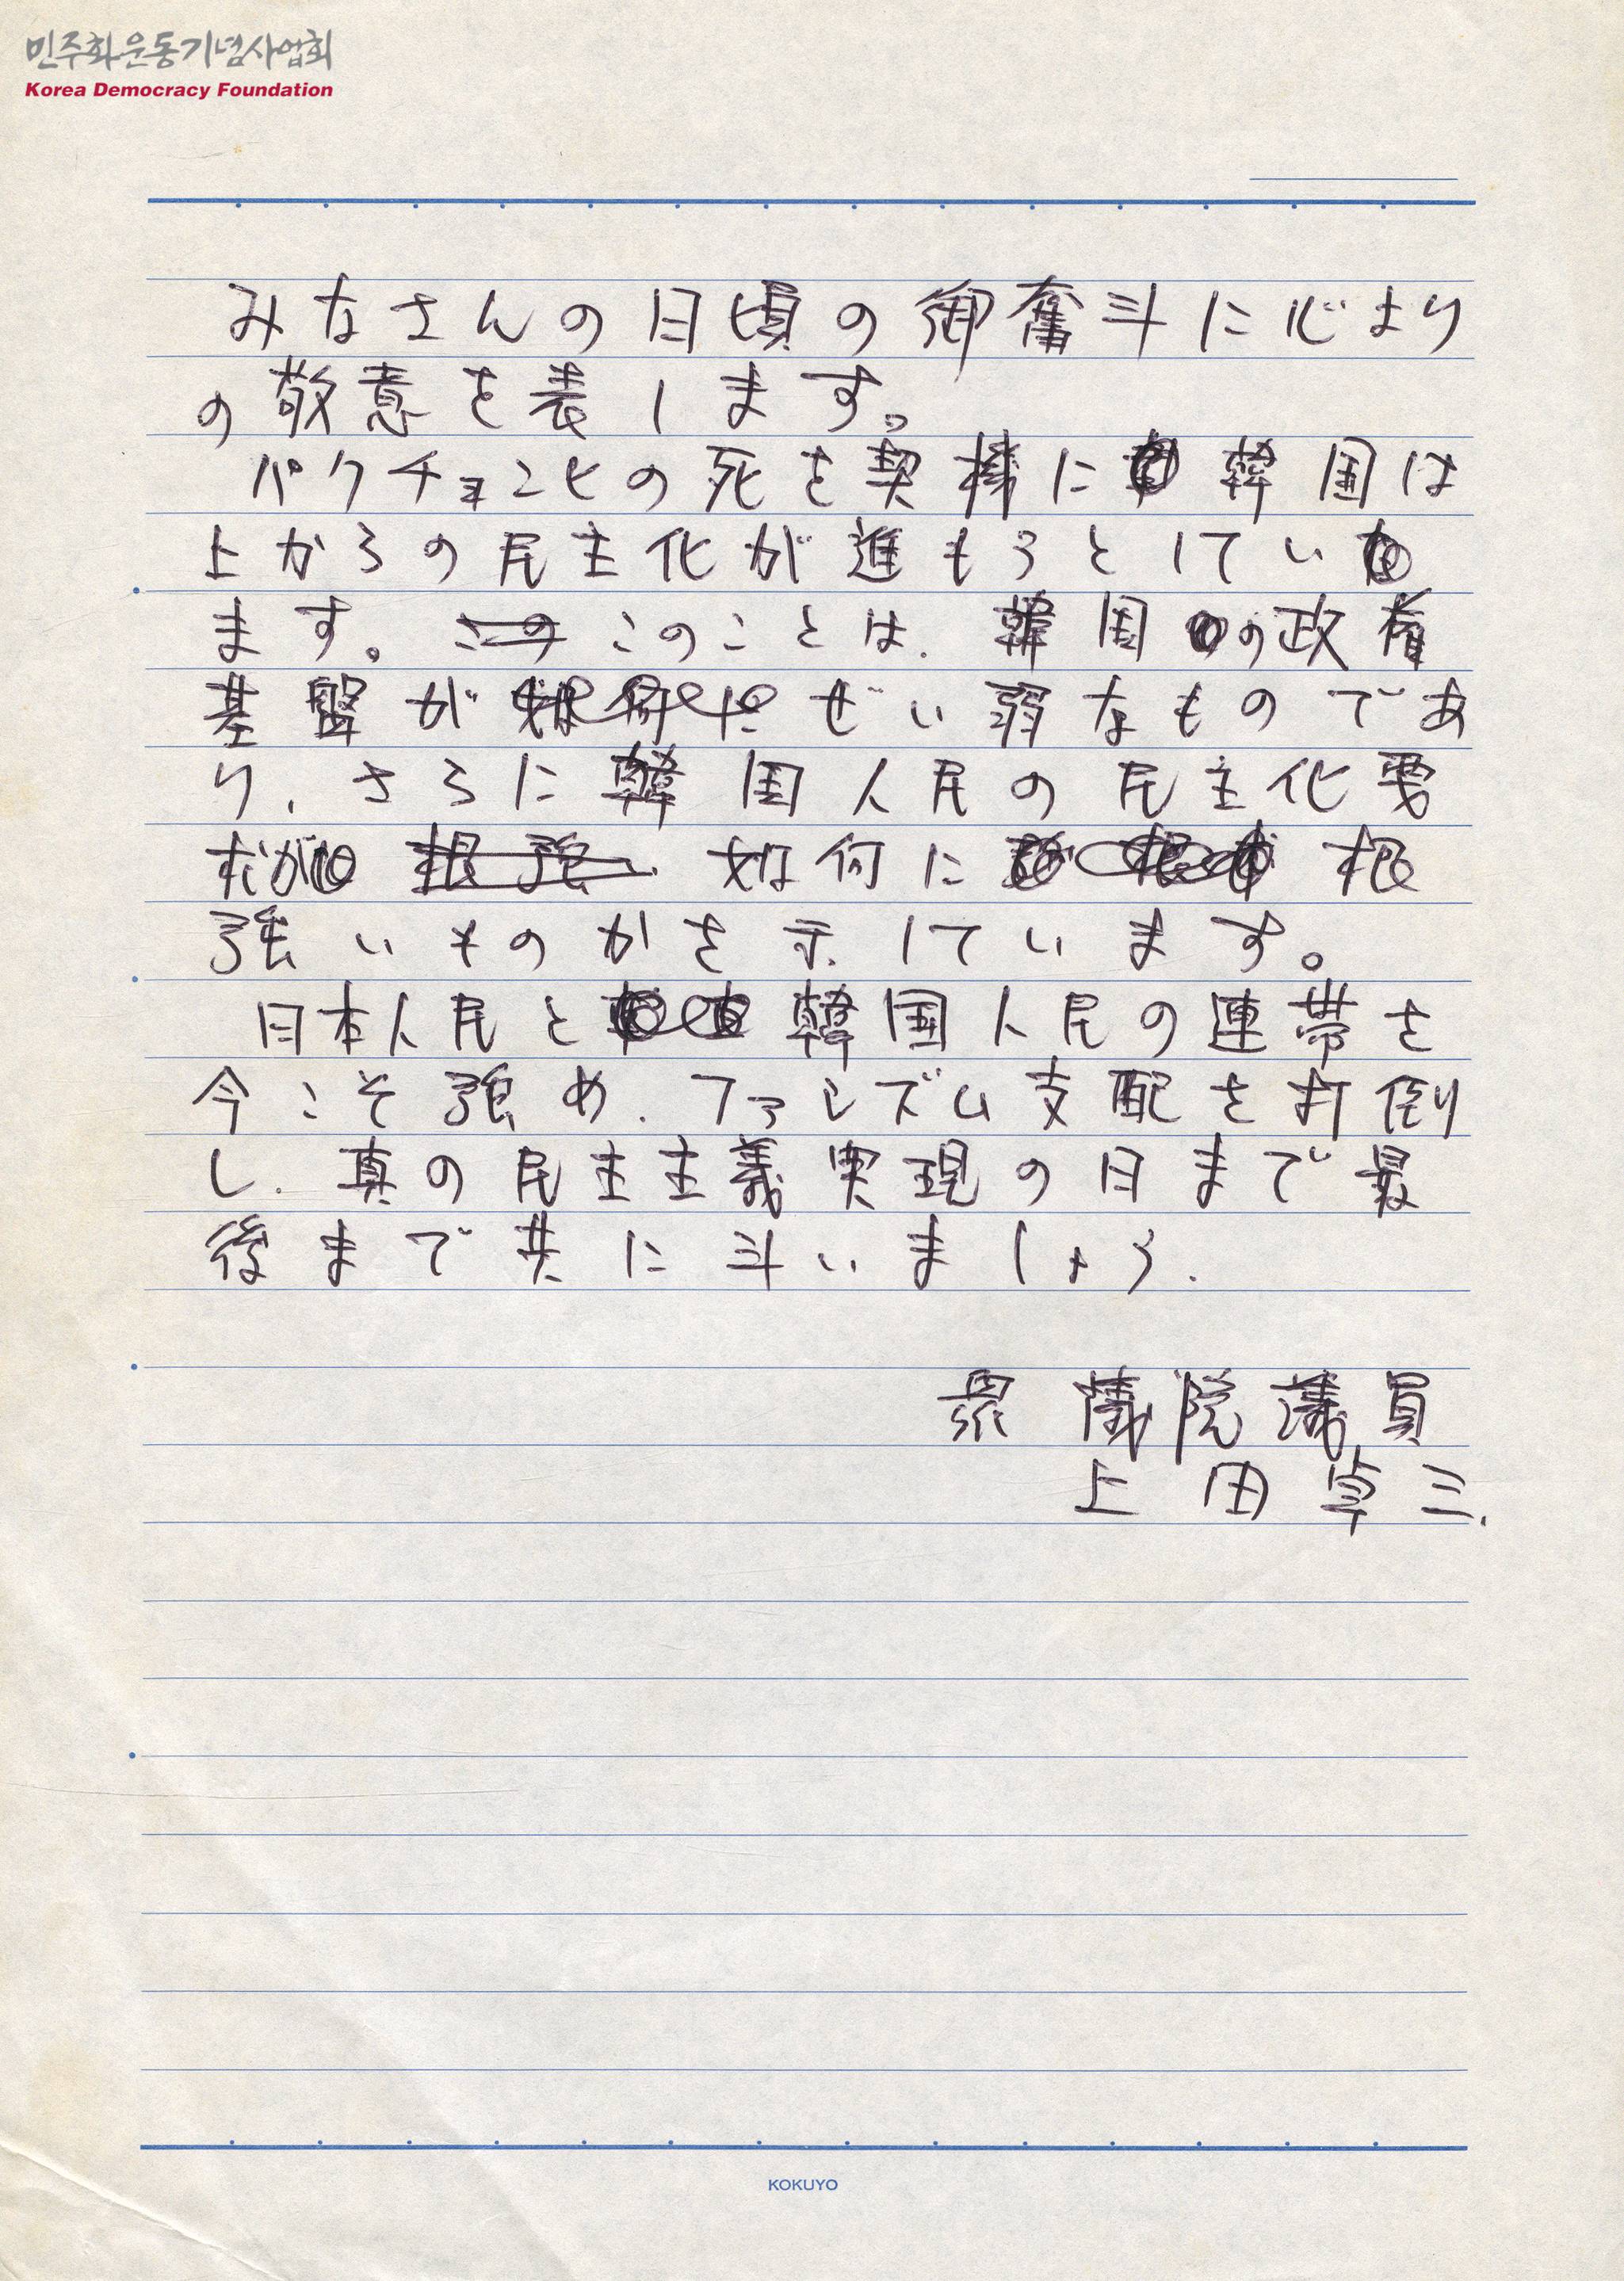 민주화운동기념사업회
Korea Democracy Foundation
みなさんの日頃の御奮斗に心より
の敬意を表します。
パクチョンヒの死を契機に韓国は
上からの民主化が進もうとしてい
ます。このことは、韓国の政権
基盤がぜい弱なものであ
り、さらに韓国人民の民主化要
求が如何に根
強いものかを示しています。
日本人民と韓国人民の連帯を
今こそ強め、ファシズム支配を打倒
し、真の民主主義実現の日まで最
後まで共に斗いましょう。
衆議院議員
上田卓三
KOKUYO